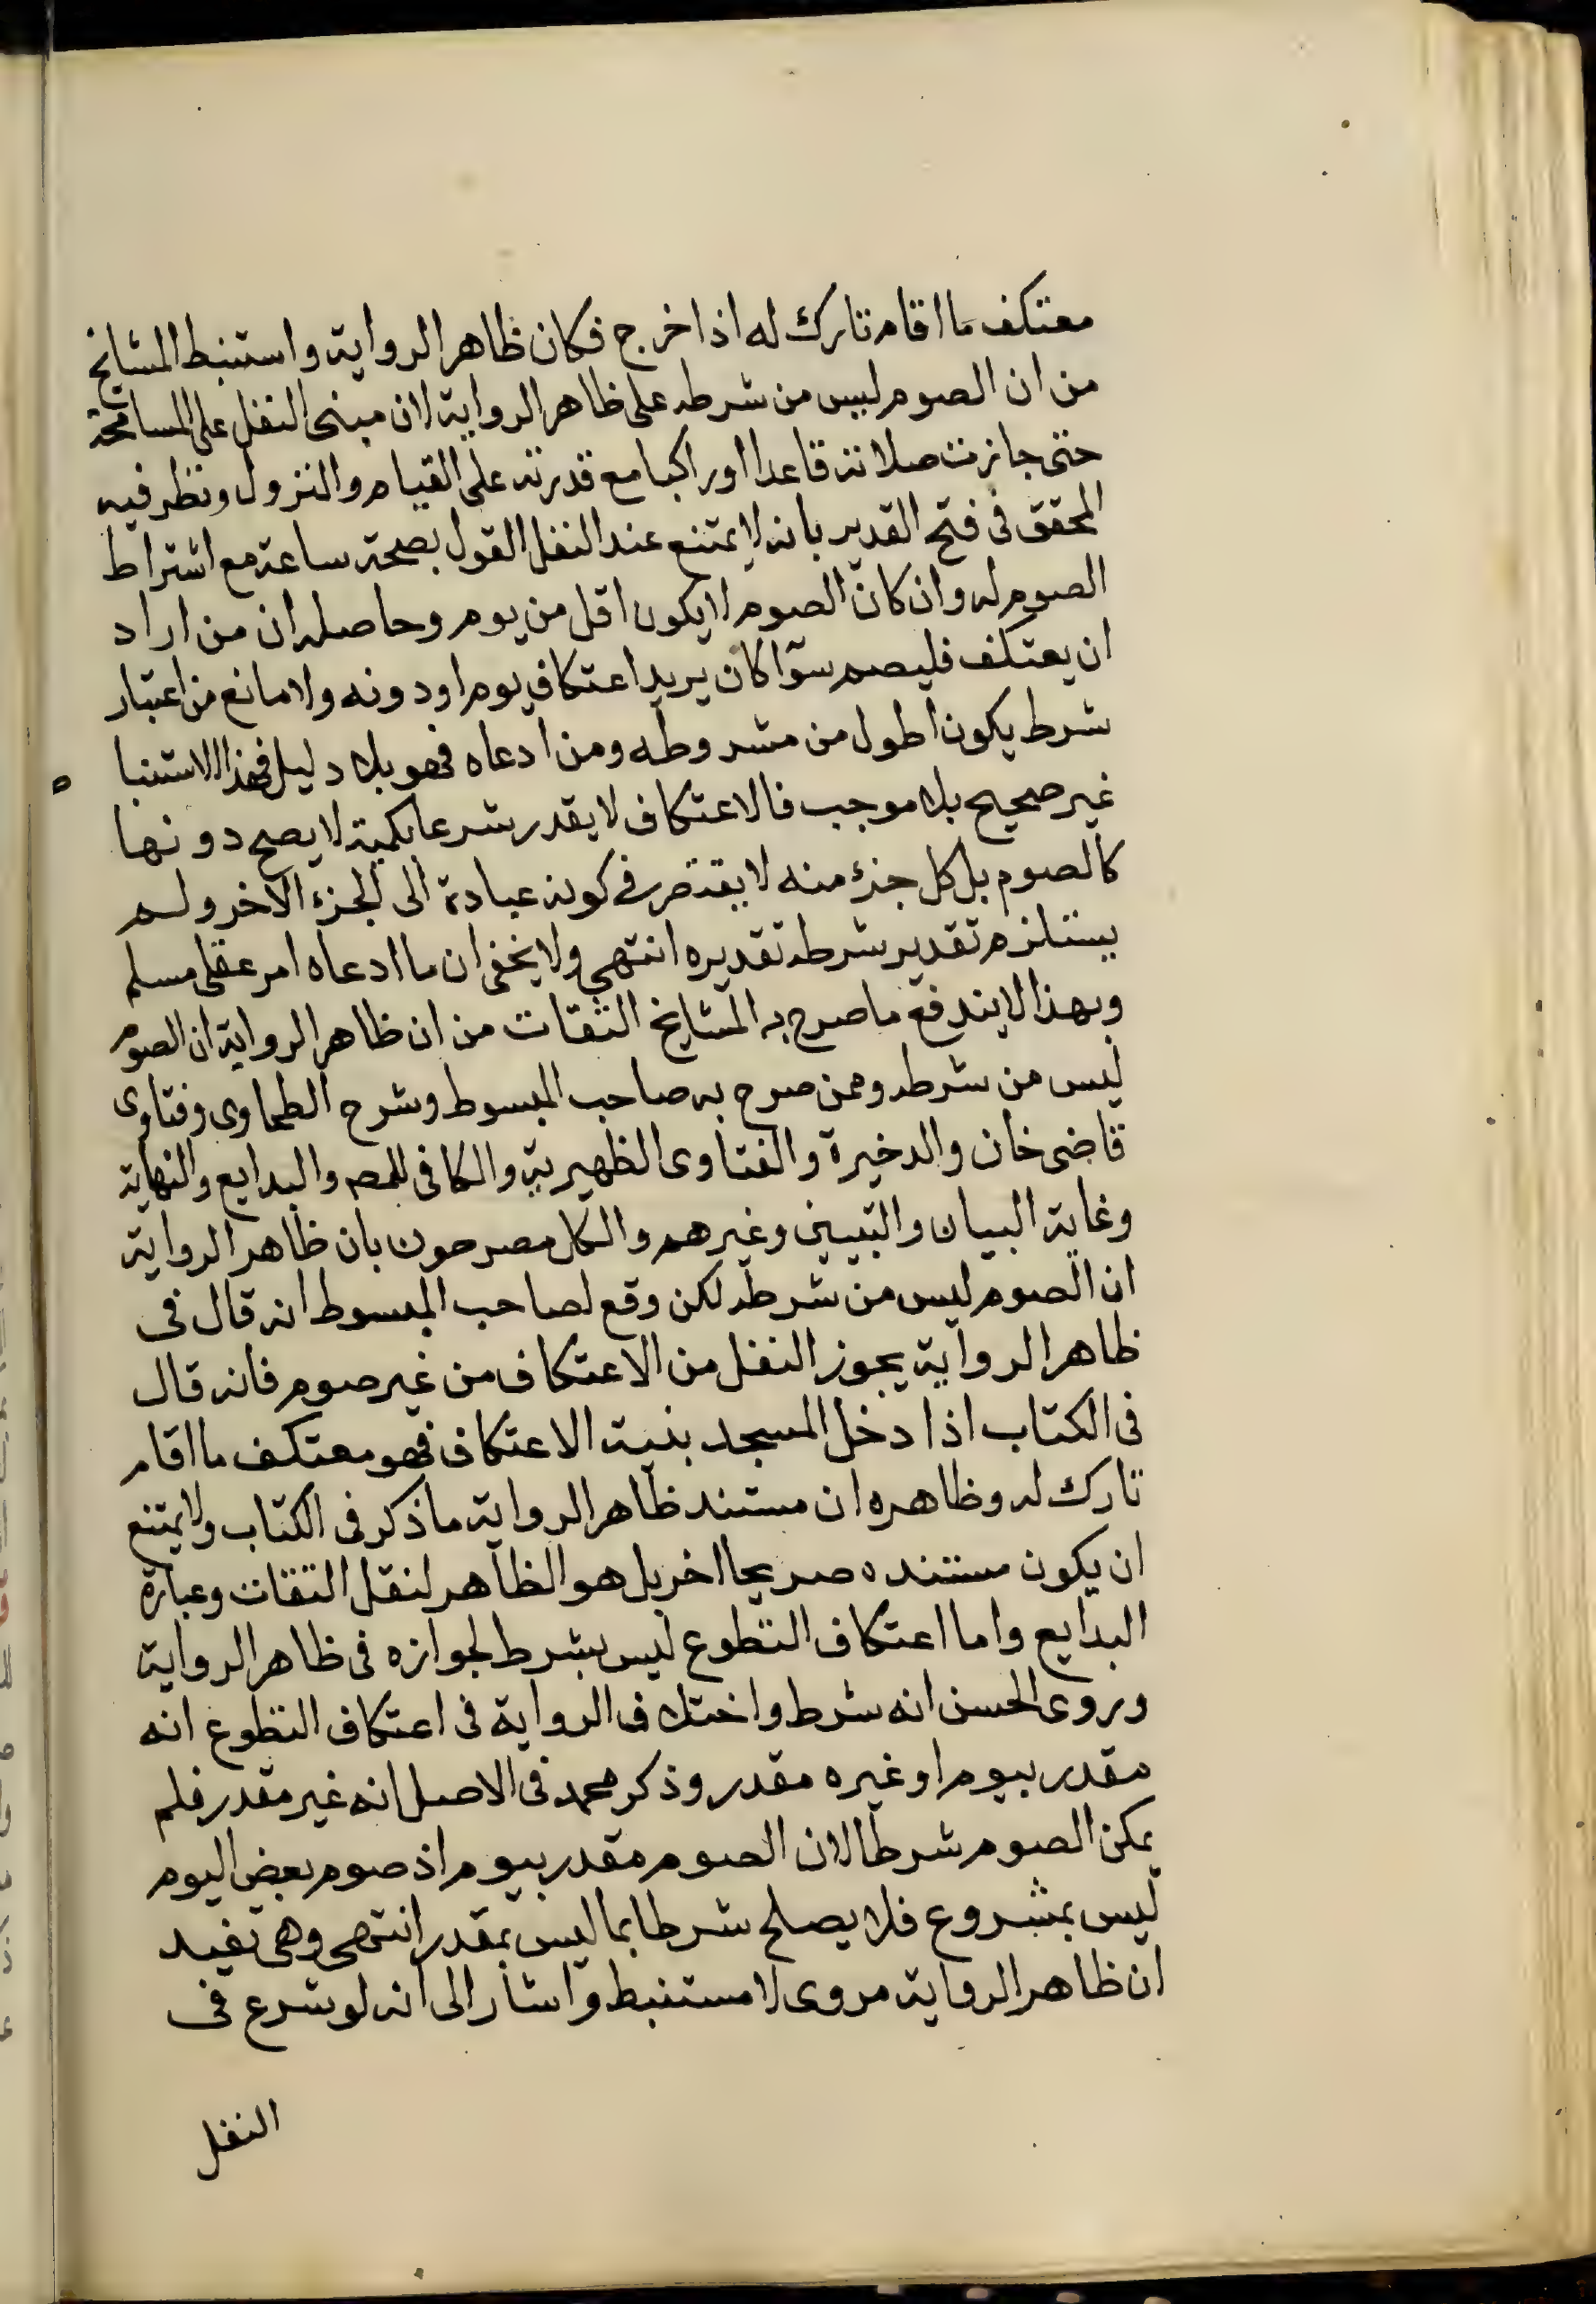 معتكف ما اقام تارك له اذا خرج فكان ظاهر الرواية واستنبط المشايخ
من ان الصوم ليس من شرطه على ظاهر الرواية لان مبنى النفل على المسامحة
حتى جازت صلاته قاعدا او راكبا مع قدرته على القيام والنزول ونظر فيه
المحقق فى فتح القدير بانه لا يمتنع عند النفل القول بصحته ساعة مع اشتراط
الصوم له وان كان الصوم لا يكون اقل من يوم وحاصله ان من اراد
ان يعتكف فليصم سوآ كان يريد اعتكاف يوم او دونه ولا مانع من اعتبار
شرط يكون اطول من مشروطه ومن ادعاه فهو بلا دليل فهذا الاستنبا
غير صحيح بلا موجب فالاعتكاف لا يقدر شرعا بكمية لا يصح دونها
كالصوم بل كل جزء منه لا يفتقر فى كونه عبادة الى الجزء الاخر ولم
يستلزم تقدير شرطه تقديره انتهى ولا يخفى ان ما ادعاه امر عقلى مسلم
وبهذا لا يندفع ما صرح به المشايخ الثقات من ان ظاهر الرواية ان الصوم
ليس من شرطه وممن صرح به صاحب المبسوط وشرح الطحاوى وفتاوى
قاضى خان والدخيرة والفتاوى الظهيرية والكافى للمصـ والبدايع والنهاية
وغاية البيان والتبيين وغيرهم والكل مصرحون بان ظاهر الرواية
ان الصوم ليس من شرطه لكن وقع لصاحب المبسوط انه قال فى
ظاهر الرواية يجوز النفل من الاعتكاف من غير صوم فانه قال
فى الكتاب اذا دخل المسجد بنية الاعتكاف فهو معتكف ما اقام
تارك له وظاهره ان مستند ظاهر الرواية ما ذكر فى الكتاب ولا يمتنع
ان يكون مستنده صريحا اخر بل هو الظاهر لنقل الثقات وعبارة
البدايع واما اعتكاف التطوع ليس بشرط لجوازه فى ظاهر الرواية
وروى الحسن انه شرط واختلاف الرواية فى اعتكاف التطوع انه
مقدر بيوم او غيره مقدر وذكر محمد فى الاصل انه غير مقدر فلم
يمكن الصوم شرطا لان الصوم مقدر بيوم اذ صوم بعض اليوم
ليس بمشروع فلا يصلح شرطا بما ليس بمقدر انتهى وهى تفيد
ان ظاهر الرواية مروى لا مستنبط واشار الى انه لو شرع فى
النفل